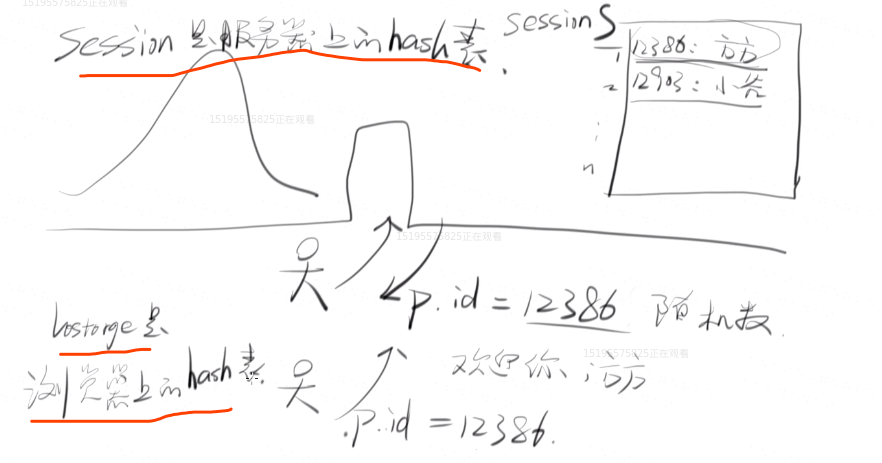 15195575825正在观看
session 是服务器上的hash表
sessionS
1 12386: 方方
2 12903: 小谷
n
15195575825正在观看
15195575825正在观看
p.id = 12386 随机数
lostorge是
浏览器上的hash表
欢迎你、方方
15195575825正在观看
p.id = 12386.